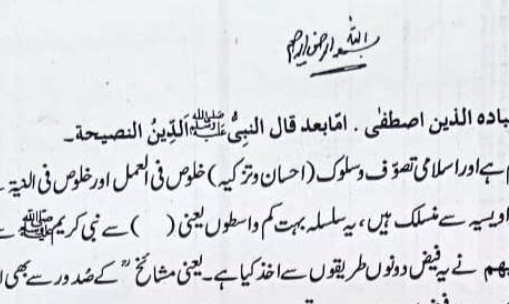 بسم اللہ الرحمٰن الرحیم
عباده الذين اصطفٰى . امّابعد قال النبیُّ ﷺ اَلدِّينُ النصيحة۔
ہے اور اسلامی تصوّف وسلوک (احسان وتزکیہ) خلوص فی العمل اور خلوص فی النیۃ
اویسیہ سے منسلک ہیں، یہ سلسلہ بہت کم واسطوں یعنی (      ) سے نبی کریم ﷺ سے
نے یہ فیض دونوں طریقوں سے اخذ کیا ہے۔ یعنی مشائخ ؒ کے صُدور سے بھی